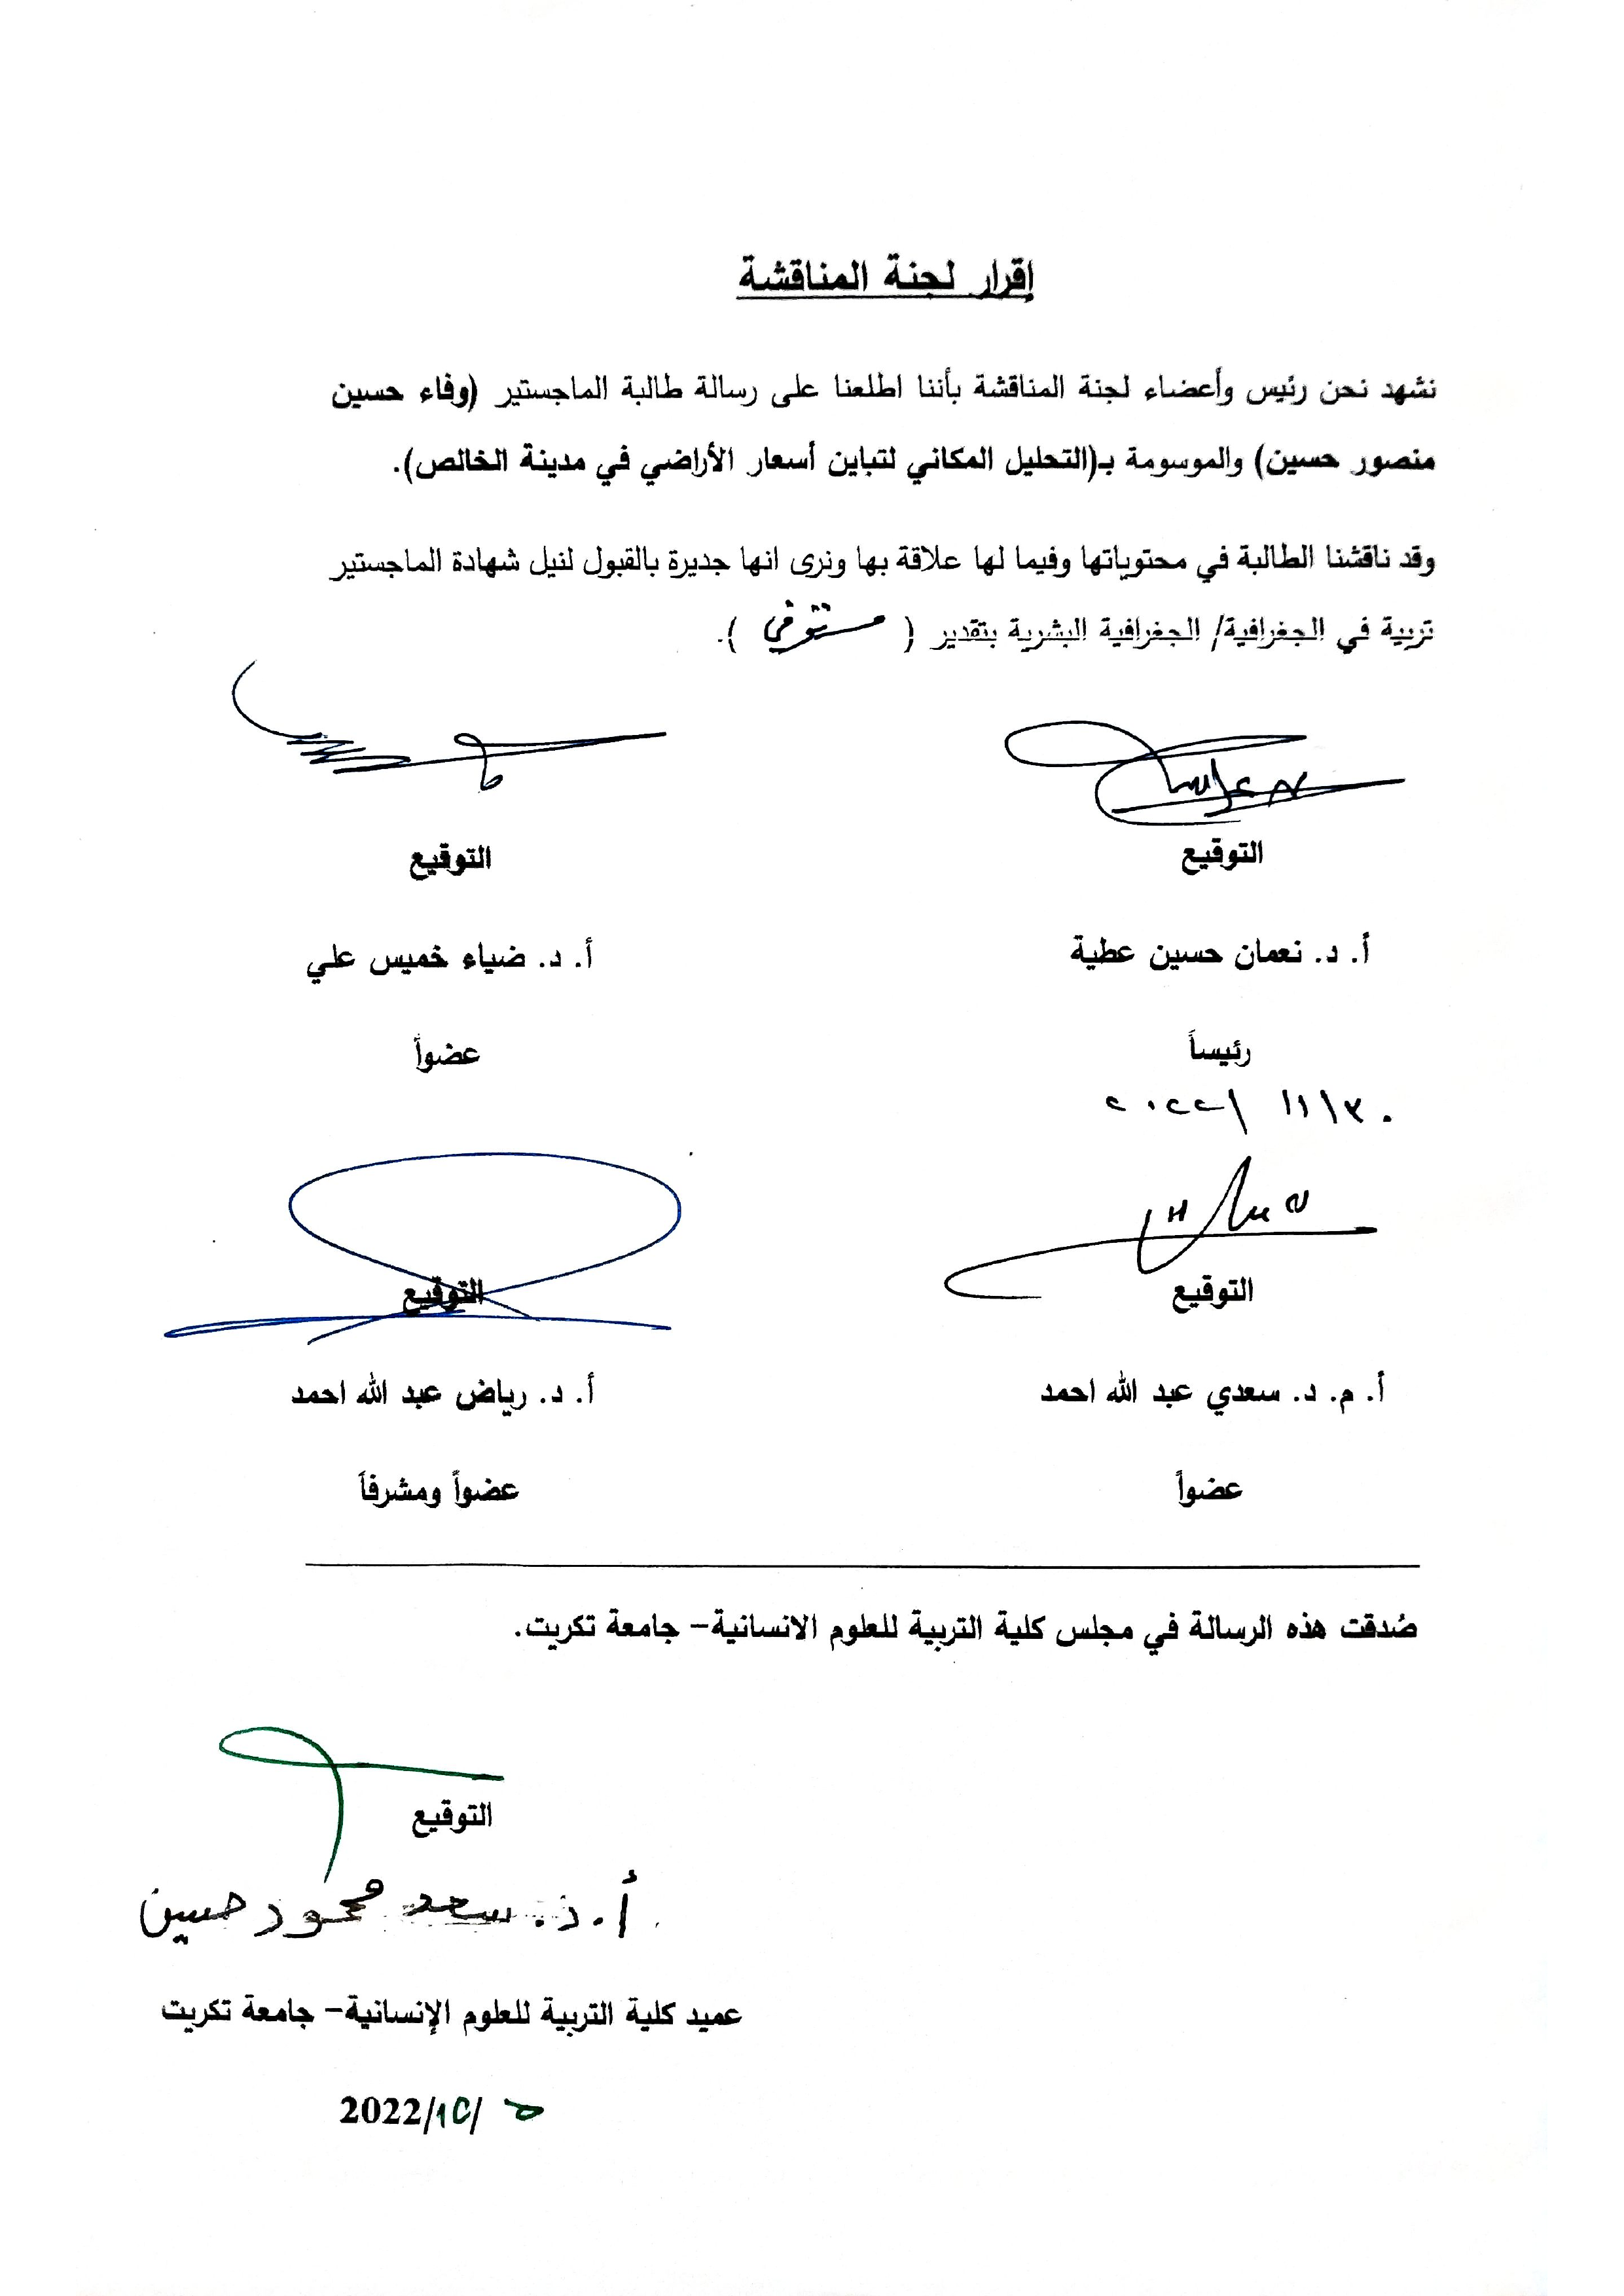 إقرار لجنة المناقشة
نشهد نحن رئيس وأعضاء لجنة المناقشة بأننا اطلعنا على رسالة طالبة الماجستير (وفاء حسين
منصور حسين) والموسومة بـ(التحليل المكاني لتباين أسعار الأراضي في مدينة الخالص).
وقد ناقشنا الطالبة في محتوياتها وفيما لها علاقة بها ونرى انها جديرة بالقبول لنيل شهادة الماجستير
تربية في الجغرافية/ الجغرافية البشرية بتقدير ( مستوفي ).
التوقيع
التوقيع
أ. د. نعمان حسين عطية
أ. د. ضياء خميس علي
رئيساً
عضواً
٢٠٢٢/ ١١/٣٠
التوقيع
التوقيع
أ. م. د. سعدي عبد الله احمد
أ. د. رياض عبد الله احمد
عضواً
عضواً ومشرفاً
صُدقت هذه الرسالة في مجلس كلية التربية للعلوم الانسانية– جامعة تكريت.
التوقيع
أ.د. سعد محمود حسين
عميد كلية التربية للعلوم الإنسانية– جامعة تكريت
2022/١٢/ ٥